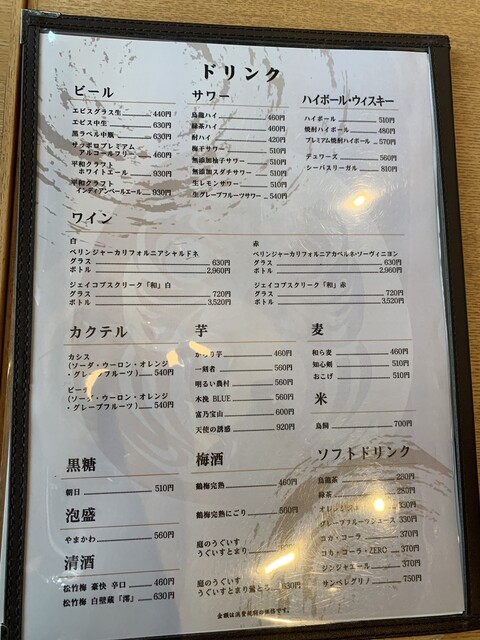 ドリンク
ビール
エビスグラス生 440円
エビス中生 630円
黒ラベル中瓶 630円
サッポロプレミアム
アルコールフリー 460円
平和クラフト
ホワイトエール 930円
平和クラフト
インディアンペールエール 930円
サワー
烏龍ハイ 460円
緑茶ハイ 460円
酎ハイ 420円
梅干サワー 510円
無添加柚子サワー 510円
無添加スダチサワー 510円
生レモンサワー 510円
生グレープフルーツサワー 540円
ハイボール・ウィスキー
ハイボール 510円
焼酎ハイボール 480円
プレミアム焼酎ハイボール 570円
デュワーズ 560円
シーバスリーガル 810円
ワイン
白
ベリンジャーカリフォルニアシャルドネ
グラス 630円
ボトル 2,960円
ジェイコブスクリーク「和」白
グラス 720円
ボトル 3,520円
赤
ベリンジャーカリフォルニアカベルネ・ソーヴィニヨン
グラス 630円
ボトル 2,960円
ジェイコブスクリーク「和」赤
グラス 720円
ボトル 3,520円
カクテル
カシス
(ソーダ・ウーロン・オレンジ
・グレープフルーツ) 540円
ピーチ
(ソーダ・ウーロン・オレンジ
・グレープフルーツ) 540円
芋
からり芋 460円
一刻者 560円
明るい農村 560円
木挽 BLUE 560円
富乃宝山 600円
天使の誘惑 920円
麦
和ら麦 460円
知心剣 510円
おこげ 510円
米
鳥飼 700円
黒糖
朝日 510円
泡盛
やまかわ 560円
清酒
松竹梅 豪快 辛口 460円
松竹梅 白壁蔵「澪」 630円
梅酒
鶴梅完熟 460円
鶴梅完熟にごり 560円
庭のうぐいす
うぐいすとまり
庭のうぐいす
うぐいすとまり鶯とろ 630円
ソフトドリンク
烏龍茶 280円
緑茶 280円
330円
グレープフルーツジュース 330円
コカ・コーラ 370円
コカ・コーラ・ZERO 370円
ジンジャエール 370円
サンペレグリノ 750円
金額は消費税別の価格です。